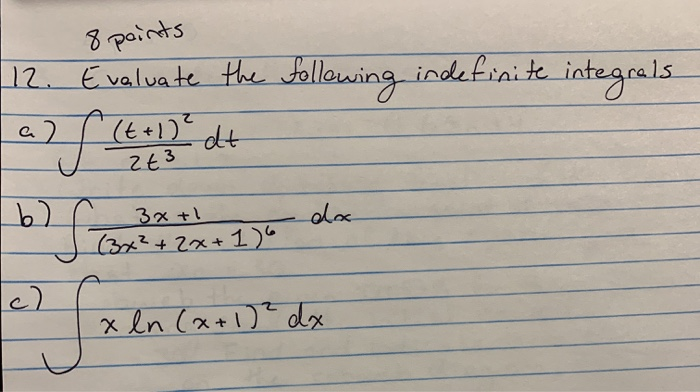 8 points
12. Evaluate the following indefinite integrals
a) ∫ (t+1)² / 2t³ dt
b) ∫ 3x+1 / (3x²+2x+1)⁶ dx
c) ∫ x ln (x+1)² dx